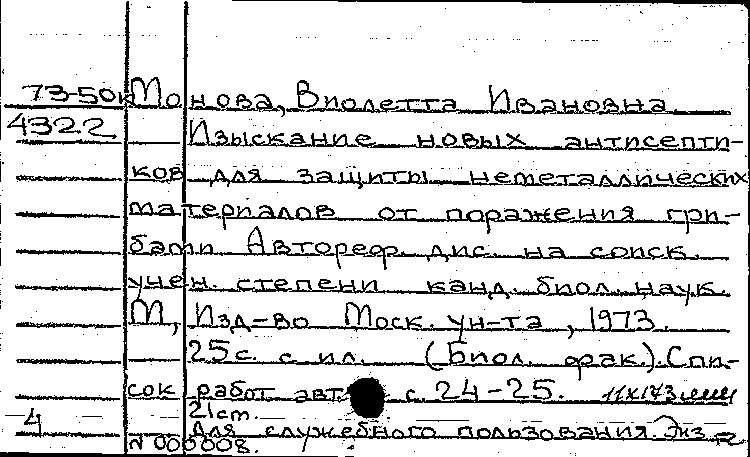 73-50к Монова, Виолетта Ивановна
4322 Изыскание новых антисепти-
ков для защиты неметаллических
материалов от поражения гри-
бами Автореф. дис. на соиск.
учен. степени канд. биол. наук.
М, Изд-во Моск. ун-та, 1973.
25с. с ил. (Биол. фак.). Спи-
сок работ авт с. 24-25.
21см.
4 Для служебного пользования. Экз
N 000008.